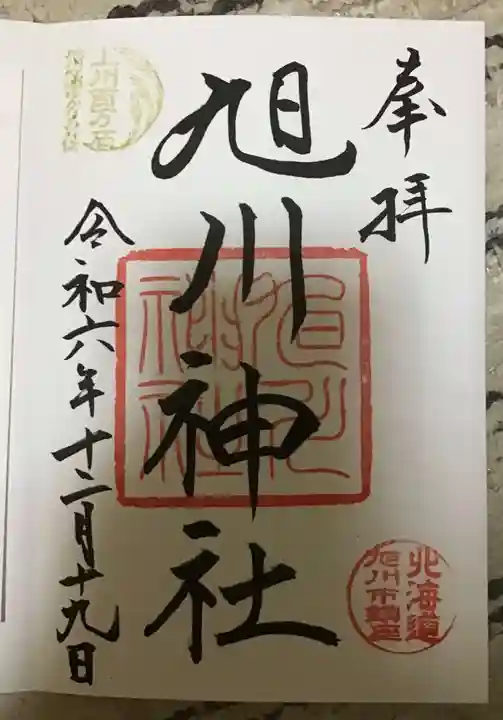 奉拝
旭川神社
旭川神社
令和六年十二月十九日
上川百万石
北海道
旭川市鎮座